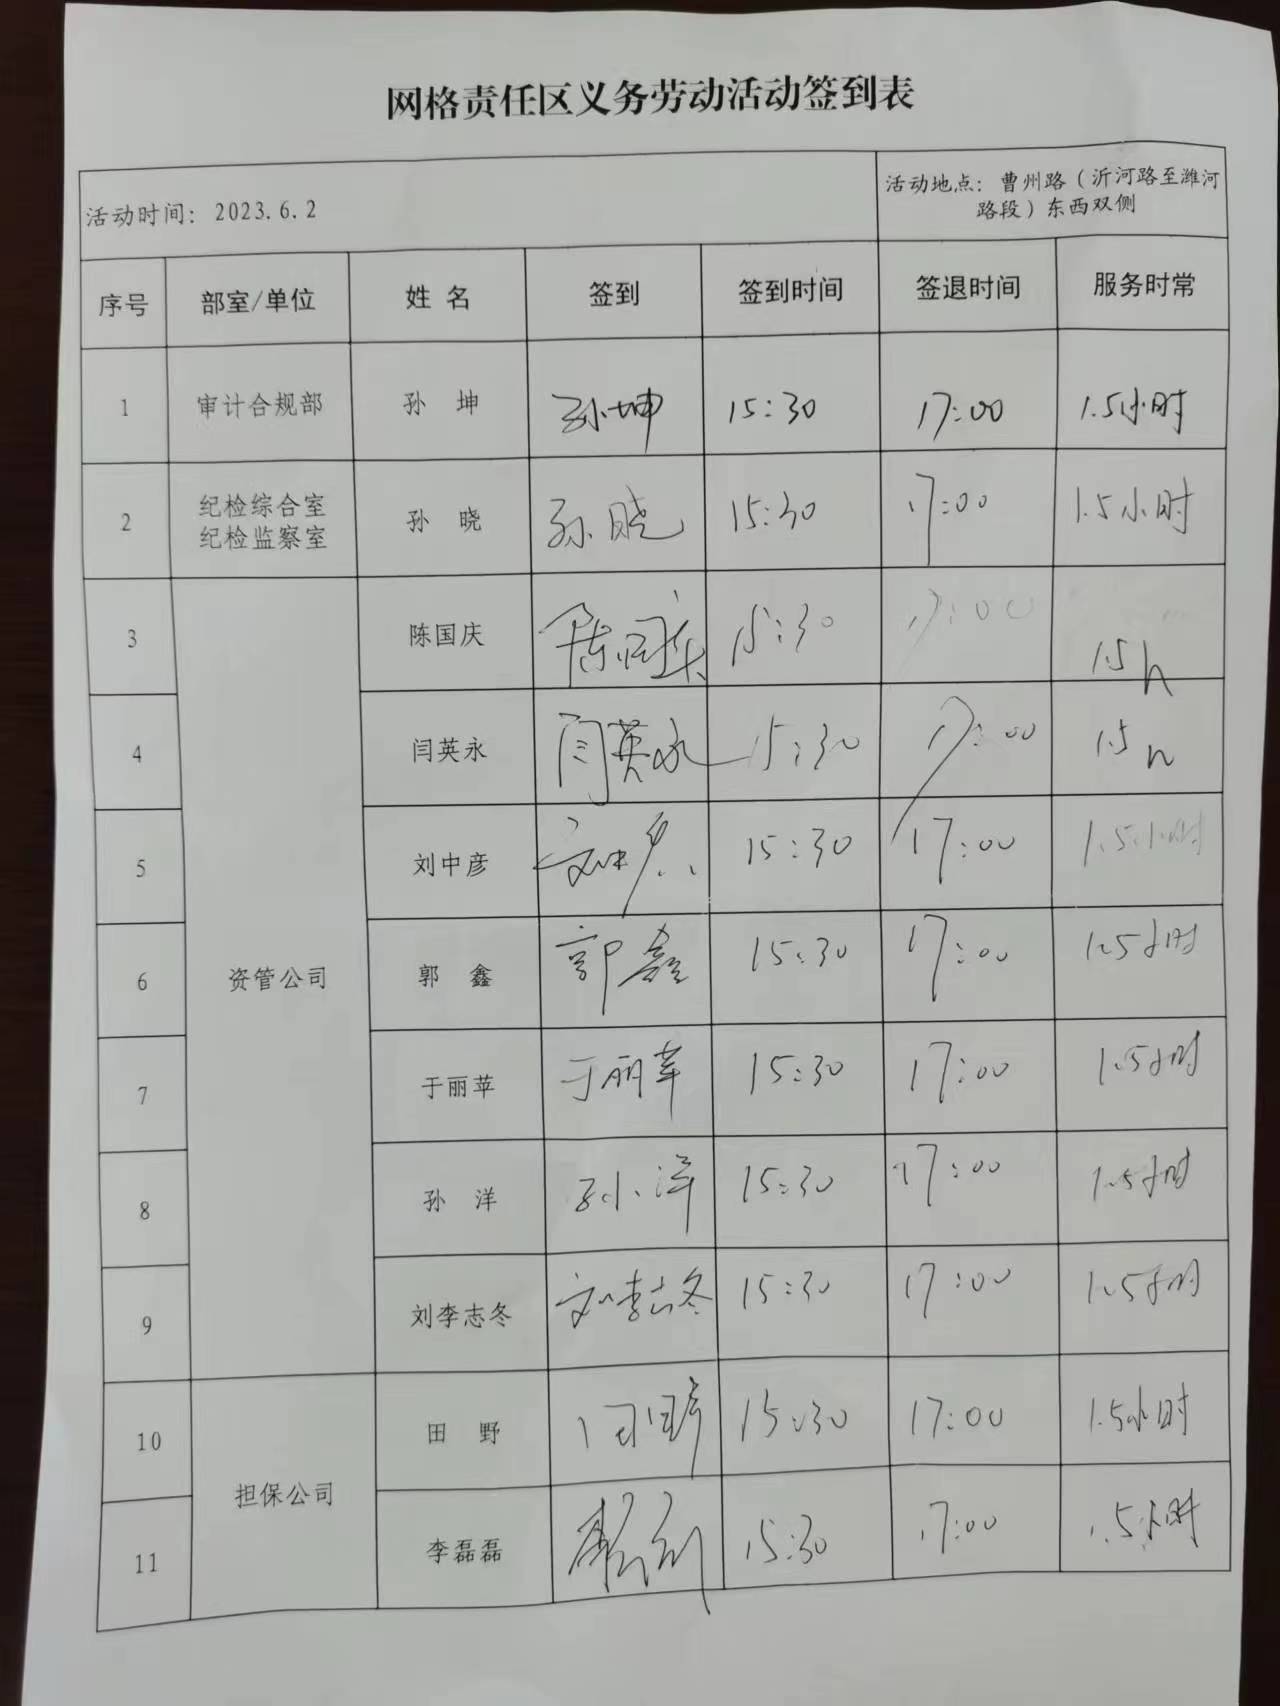 网格责任区义务劳动活动签到表
活动时间: 2023.6.2
活动地点: 曹州路（沂河路至潍河
路段）东西双侧
序号 部室/单位 姓 名 签到 签到时间 签退时间 服务时常
1 审计合规部 孙 坤 孙坤 15:30 17:00 1.5小时
2 纪检综合室
纪检监察室 孙 晓 孙晓 15:30 17:00 1.5小时
3 陈国庆 陈国庆 15:30 17:00 1.5h
4 闫英永 闫英永 15:30 17:00 1.5h
5 刘中彦 刘中彦 15:30 17:00 1.5小时
6 资管公司 郭 鑫 郭鑫 15:30 17:00 1.5小时
7 于丽苹 于丽苹 15:30 17:00 1.5小时
8 孙 洋 孙洋 15:30 17:00 1.5小时
9 刘李志冬 刘李志冬 15:30 17:00 1.5小时
10 田 野 田野 15:30 17:00 1.5小时
担保公司
11 李磊磊 李磊磊 15:30 17:00 1.5小时